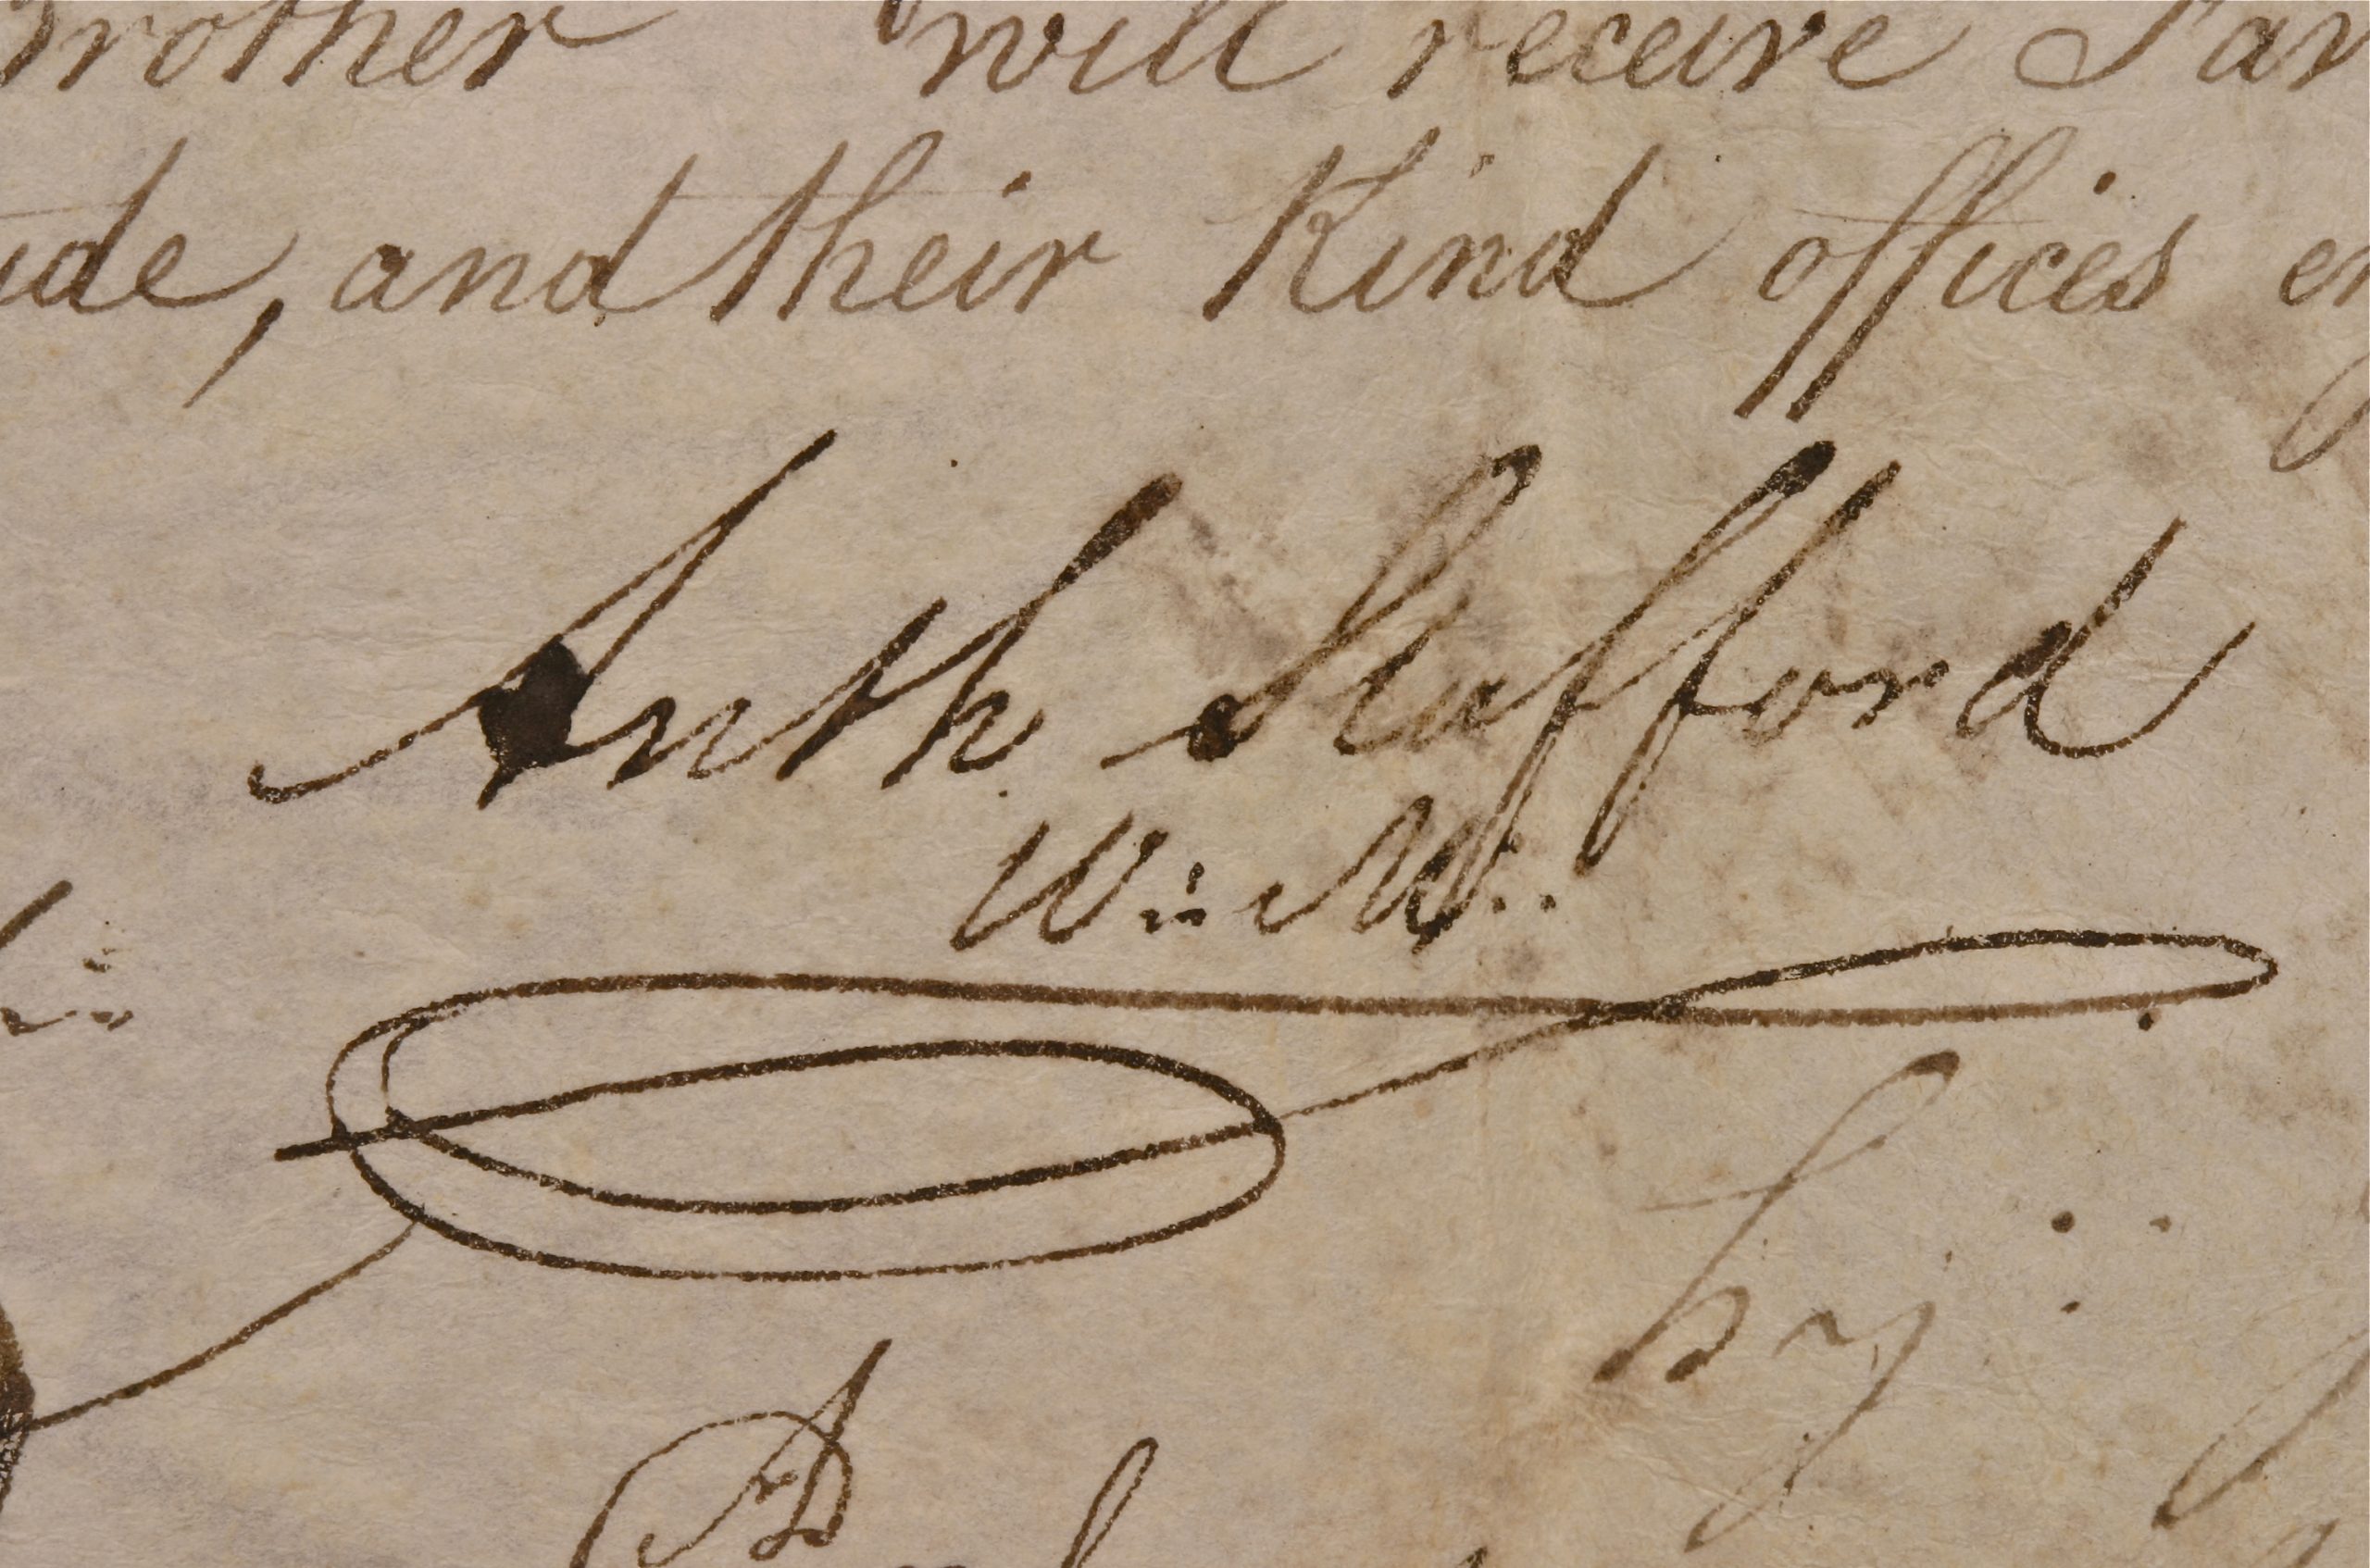 Brother will receive Par
ude, and their Kind offices en
Anth Stafford
W:: M::
by